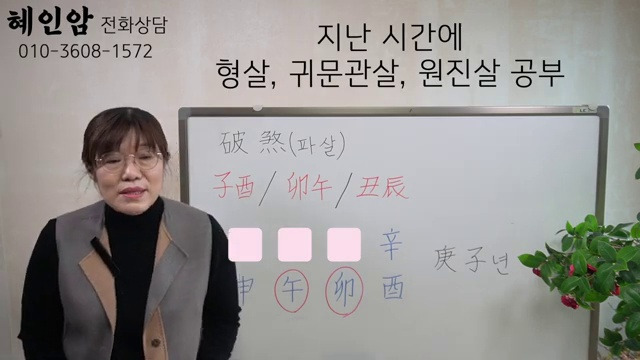 혜인암 전화상담
010-3608-1572
지난 시간에
형살, 귀문관살, 원진살 공부
破 煞(파살)
子酉 / 卯午 / 丑辰
辛
庚子년
申 午 卯 酉